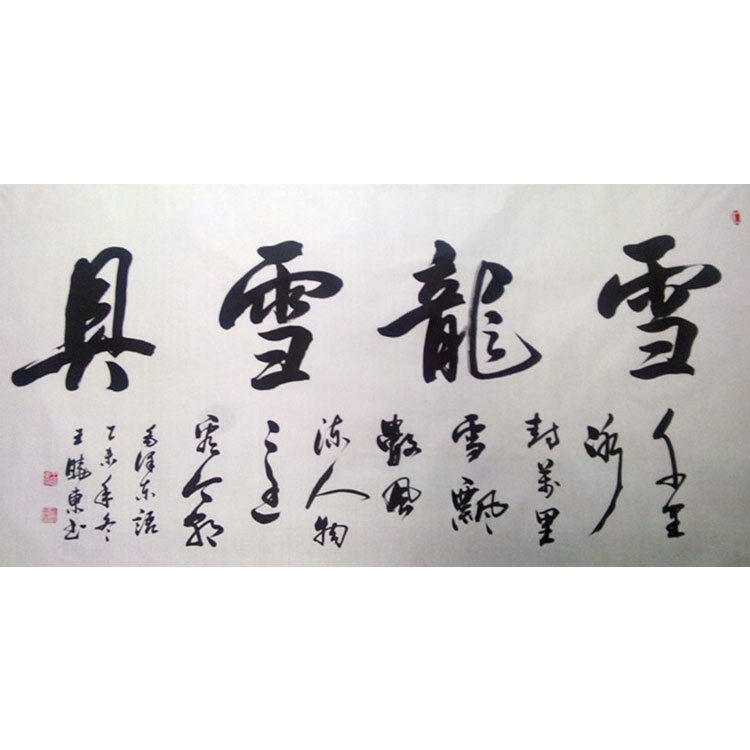 雪龍雪具
千里
冰
封萬里
雪飄
數風
流人物
還
看今朝
毛澤东語
乙未年冬
王曉東书